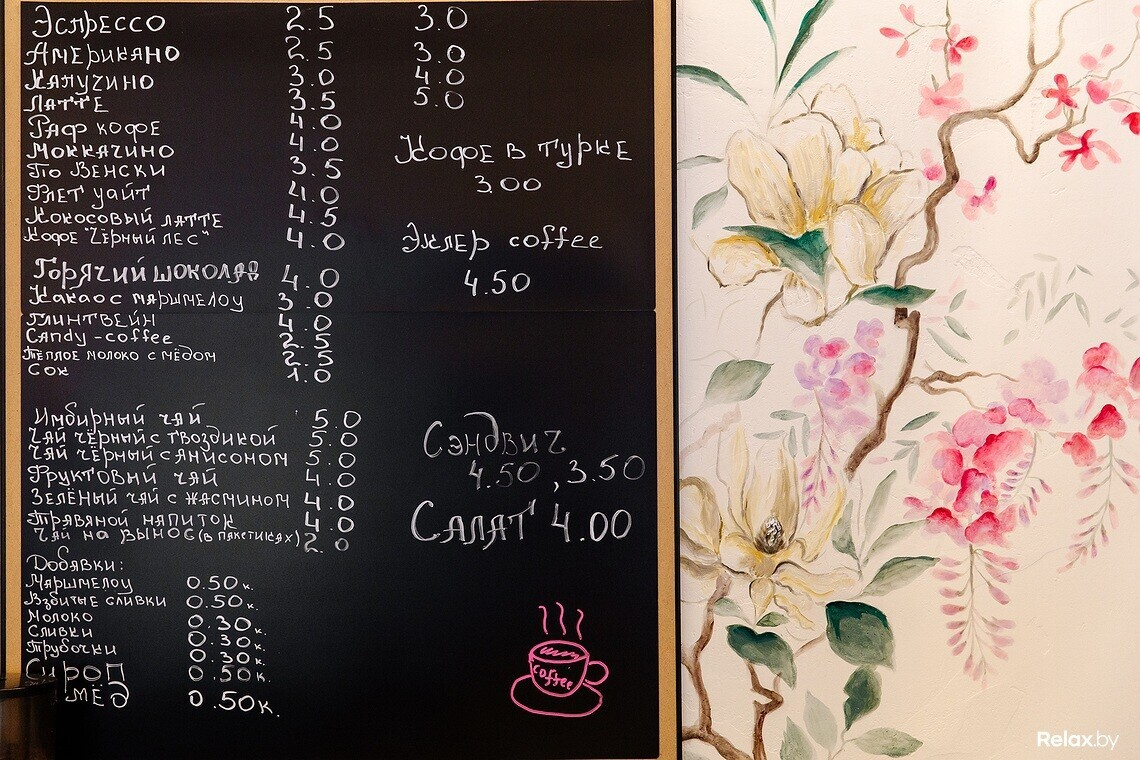 Эспрессо 2.5 3.0
Американо 2.5 3.0
Капучино 3.0 4.0
Латте 3.5 5.0
Раф кофе 4.0
Моккачино 4.0
По Венски 3.5
Флет уайт 4.0
Кокосовый латте 4.5
Кофе "Чёрный лес" 4.0
Горячий шоколад 4.0
Какао с маршмелоу 3.0
Глинтвейн 4.0
Candy-coffee 2.5
Тёплое молоко с мёдом 2.5
Сок 1.0
Имбирный чай 5.0
Чай чёрный с гвоздикой 5.0
Чай чёрный с анисоном 5.0
Фруктовый чай 4.0
Зелёный чай с жасмином 4.0
Травяной напиток 4.0
Чай на вынос (в пакетиках) 2.0
Добавки:
Маршмелоу 0.50к.
Взбитые сливки 0.50к.
Молоко 0.30к.
Сливки 0.30к.
Трубочки 0.30к.
Сироп 0.50к.
мёд 0.50к.
Кофе в турке
3.00
Эклер coffee
4.50
Сэндвич
4.50, 3.50
Салат 4.00
coffee
Relax.by